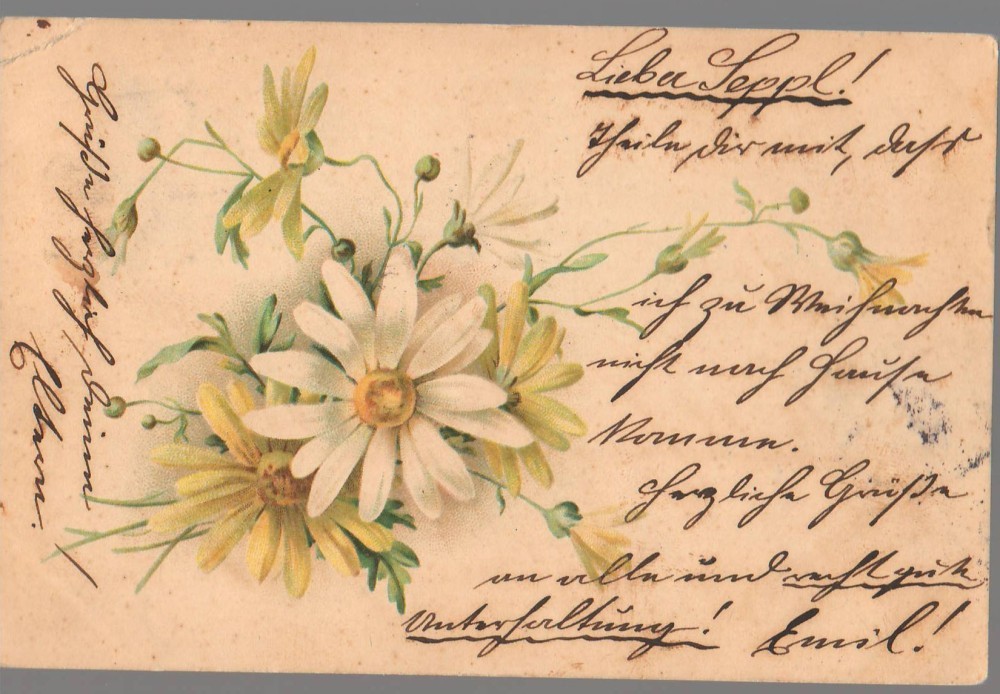 Lieber Seppl!
Theile dir mit, dass
ich zu Weihnachten
nicht nach Hause
komme.
Herzliche Grüße
an alle und recht gute
Unterhaltung! Emil!
Grüße herzlich deine
Eltern!